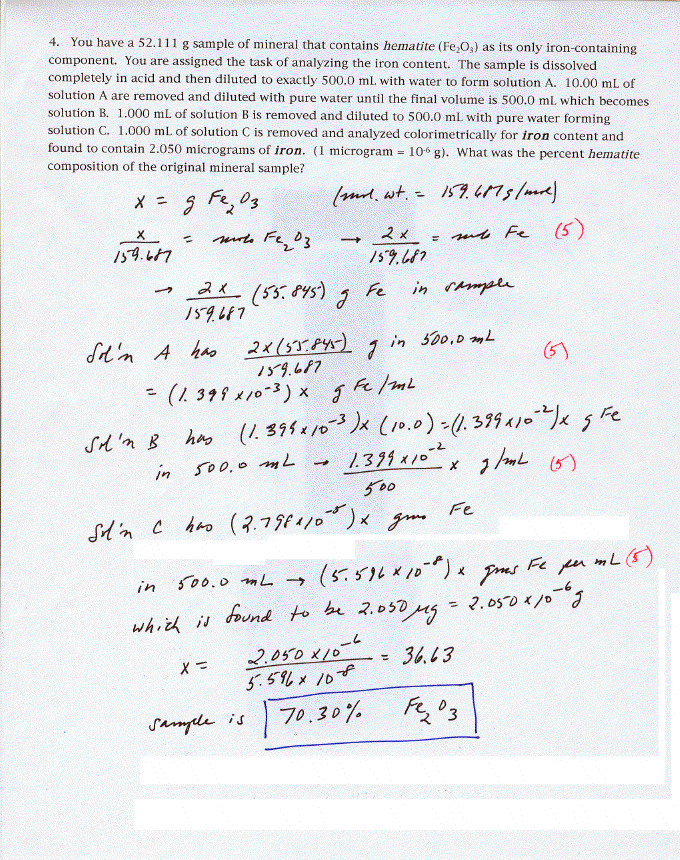 4. You have a 52.111 g sample of mineral that contains hematite (Fe₂O₃) as its only iron-containing
component. You are assigned the task of analyzing the iron content. The sample is dissolved
completely in acid and then diluted to exactly 500.0 mL with water to form solution A. 10.00 mL of
solution A are removed and diluted with pure water until the final volume is 500.0 mL which becomes
solution B. 1.000 mL of solution B is removed and diluted to 500.0 mL with pure water forming
solution C. 1.000 mL of solution C is removed and analyzed colorimetrically for iron content and
found to contain 2.050 micrograms of iron. (1 microgram = 10⁻⁶ g). What was the percent hematite
composition of the original mineral sample?
x = g Fe₂O₃ (mol. wt. = 159.687 g/mole)
x/159.687 = mols Fe₂O₃ → 2x/159.687 = mols Fe (5)
→ 2x/159.687 (55.845) g Fe in sample
Sol'n A has 2x(55.845)/159.687 g in 500.0 mL (5)
= (1.399 x 10⁻³) x g Fe/mL
Sol'n B has (1.399 x 10⁻³)x (10.0) = (1.399 x 10⁻²)x g Fe
in 500.0 mL → 1.399 x 10⁻²/500 x g/mL (5)
Sol'n C has (2.798 x 10⁻⁵) x gms Fe
in 500.0 mL → (5.596 x 10⁻⁸) x gms Fe per mL (5)
which is found to be 2.050 μg = 2.050 x 10⁻⁶ g
x = 2.050 x 10⁻⁶/5.596 x 10⁻⁸ = 36.63
sample is 70.30% Fe₂O₃